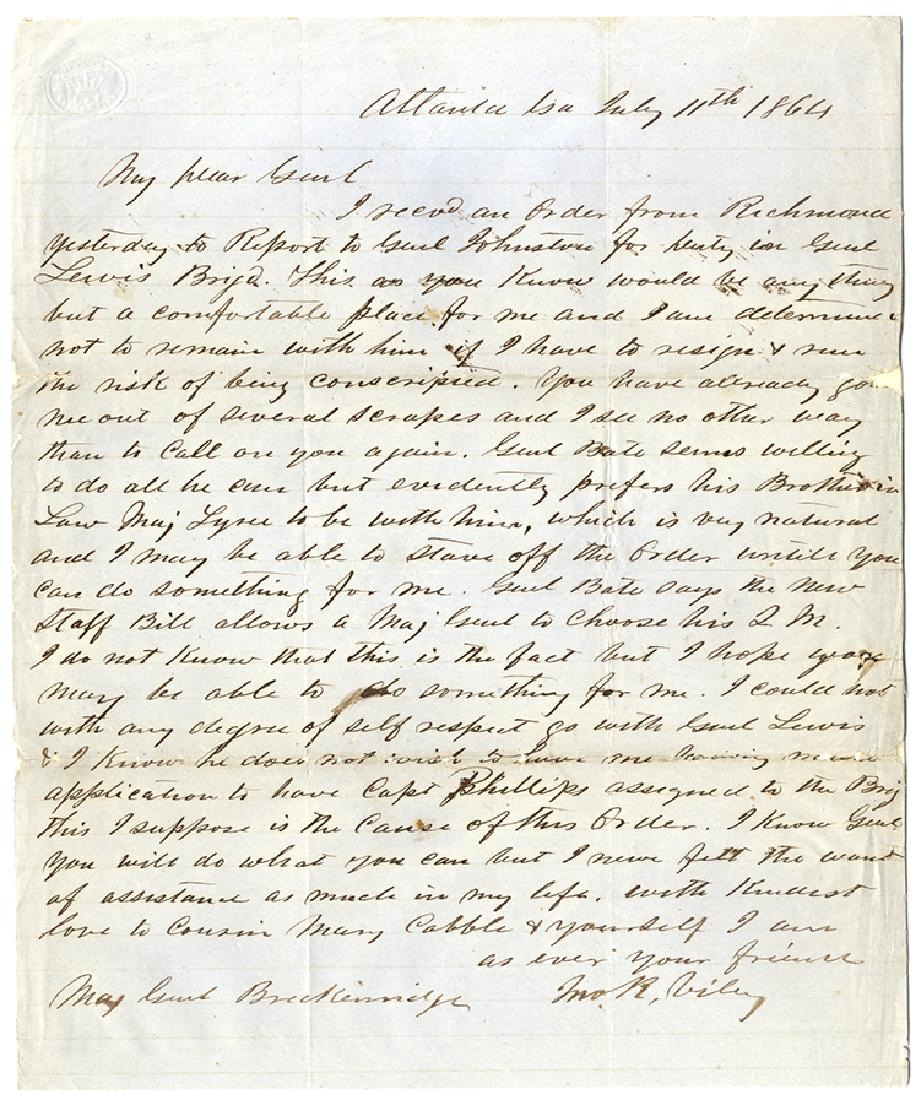 Atlanta Ga July 11th 1864
My dear Genl
I recvd an Order from Richmond
yesterday to Report to Genl Johnston for duty in Genl
Lewis Brigd. This as you Know would be any thing
but a comfortable place for me and I am determined
not to remain with him if I have to resign & run
the risk of being conscripted. You have already got
me out of several scrapes and I see no other way
than to Call on you again. Genl Bate seems willing
to do all he can but evidently prefers his Brother in
Law Maj to be with him, which is very natural
and I may be able to stave off the Order untill you
can do something for me. Genl Bate says the new
Staff Bill allows a Maj Genl to Choose his Q M.
I do not Know that this is the fact but I hope you
may be able to do something for me. I could not
with any degree of self respect go with Genl Lewis
& I Know he does not wish to have me having made
application to have Capt Phillips assigned to the Brig
this I suppose is the Cause of this Order. I Know Genl
you will do what you can but I never felt the want
of assistance as much in my life. with Kindest
love to Cousin Mary Cabble & yourself I am
as ever your friend
Maj Genl Breckenridge Jno R. Viley